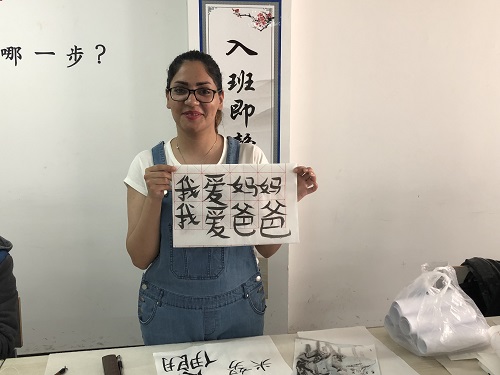 哪一步?
入班即静
我爱妈妈
我爱爸爸